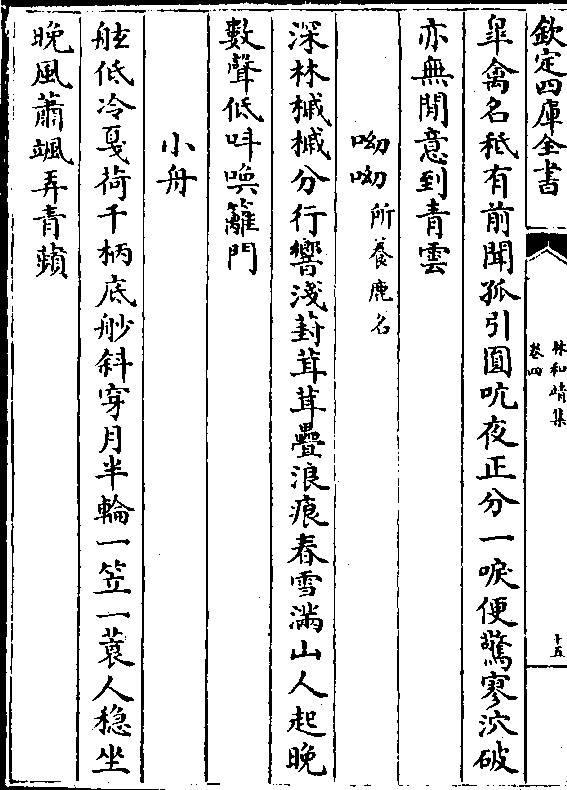 欽定四庫全書
林和靖集
卷四
十五
皐禽名秪有前聞孤引圓吭夜正分一唳便驚寥泬破
亦無閒意到青雲
呦呦所養鹿名
深林槭槭分行響淺葑茸茸疊浪痕春雪滿山人起晚
數聲低呌喚籬門
小舟
舷低冷戞荷千柄底舩斜穿月半輪一笠一蓑人穏坐
晚風蕭颯弄青蘋